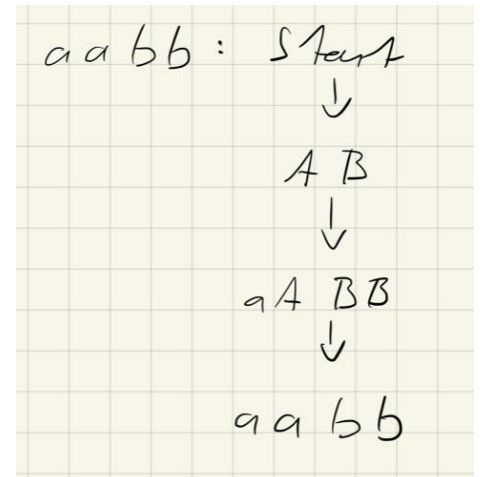 aabb: Start
↓
AB
↓
aA BB
↓
aabb